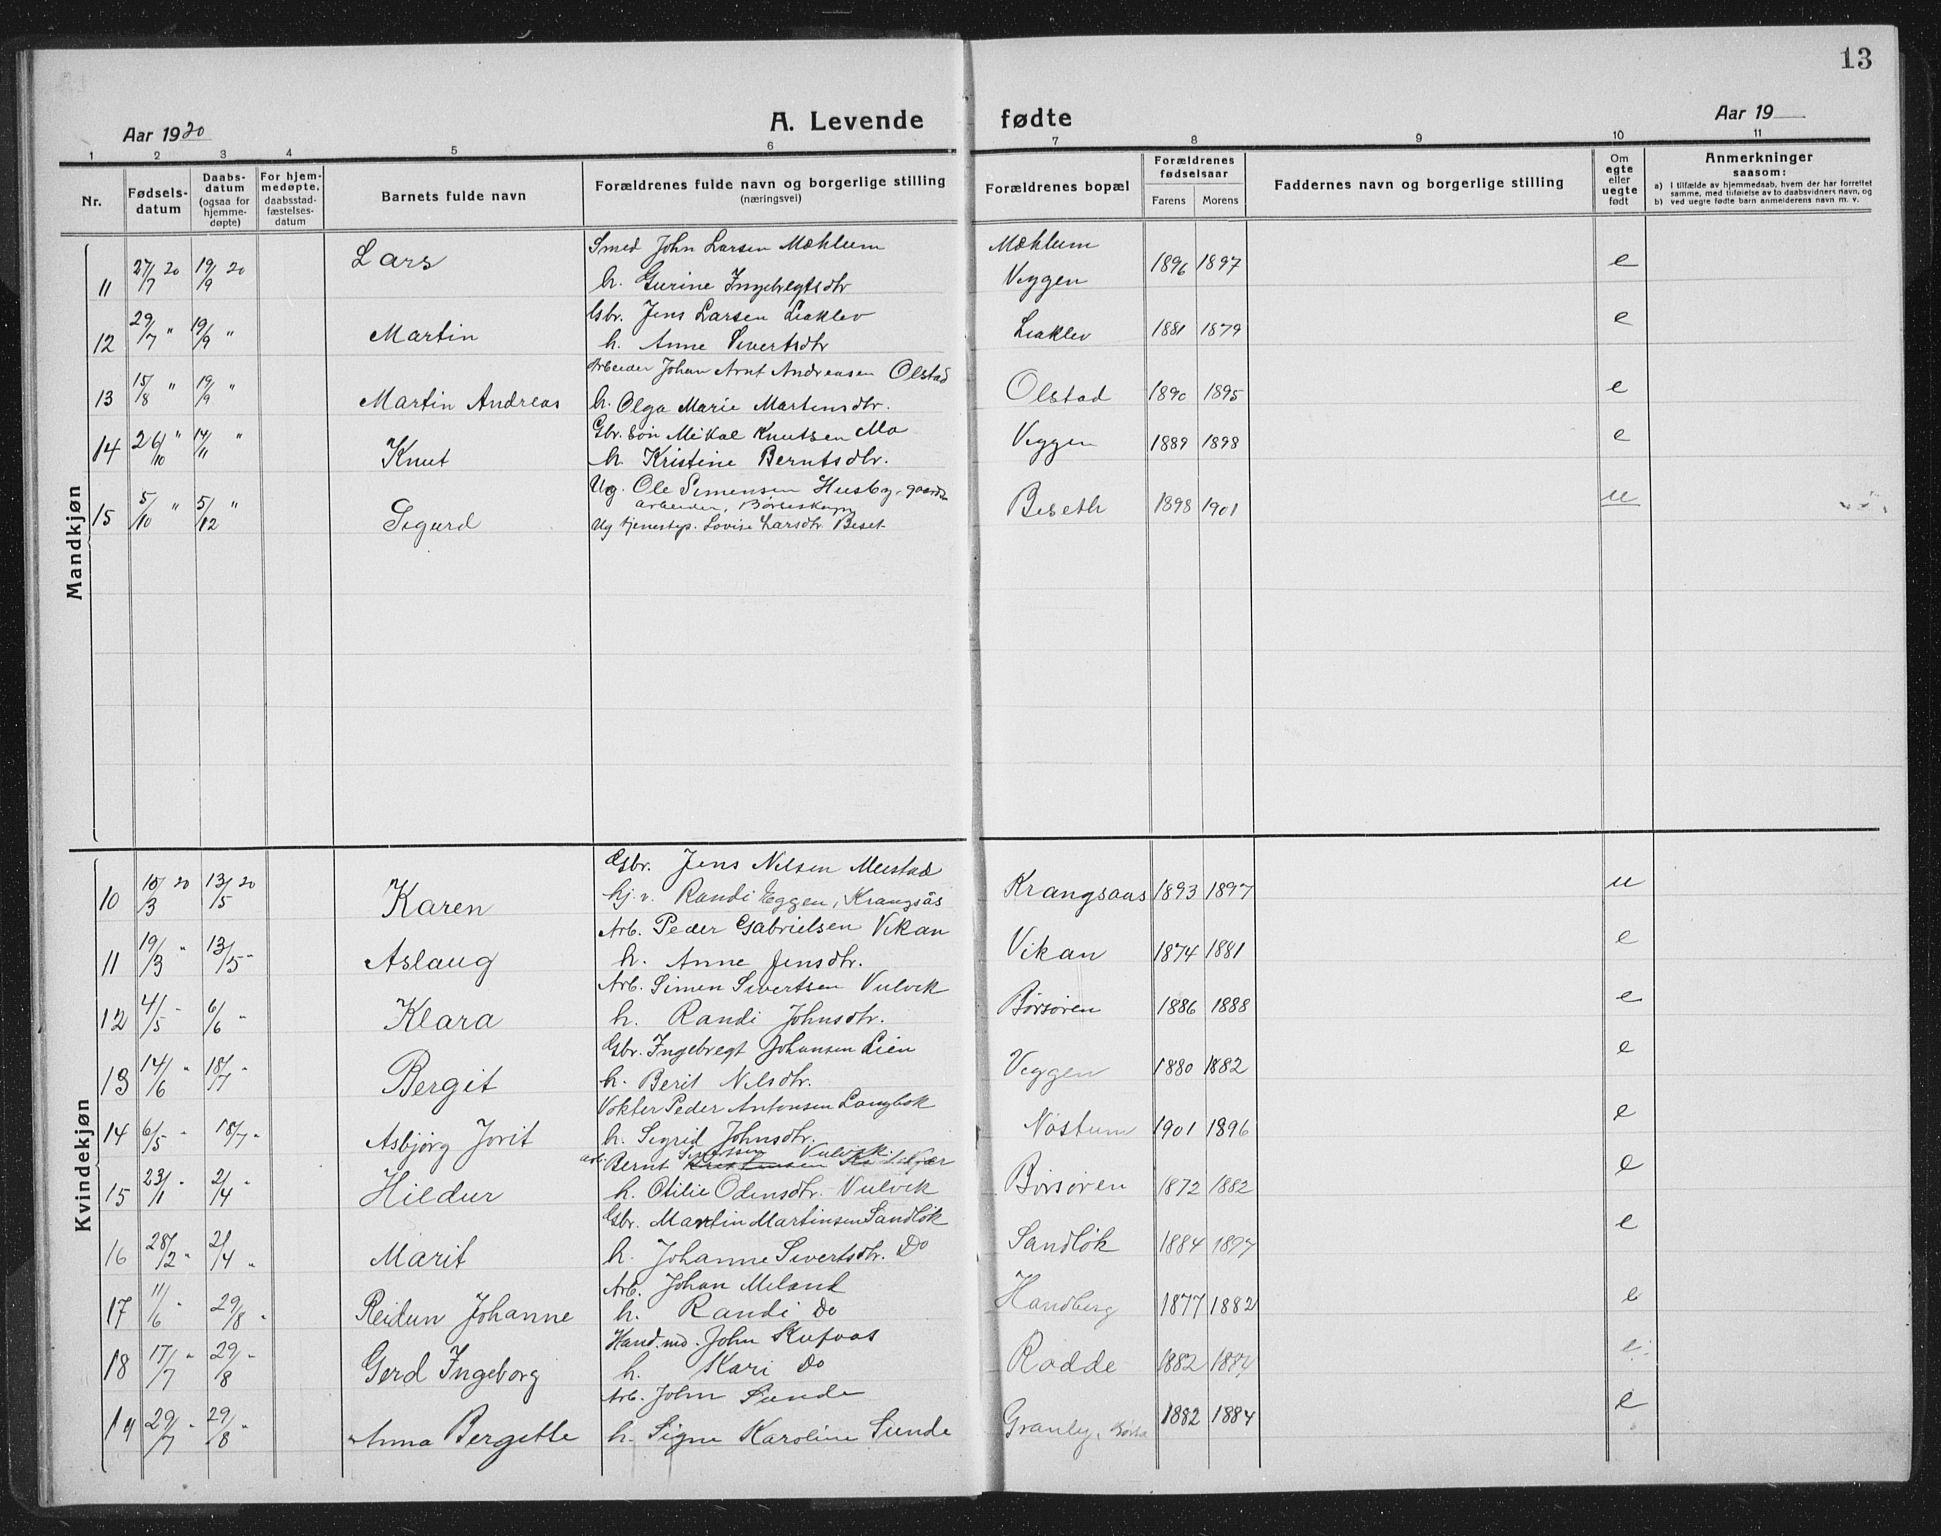 13
Aar 1920
A. Levende fødte
Aar 19
1 2 3 4 5 6 7 8 9 10 11
Nr.
Fødsels-
datum
Daabs-
datum
(ogsaa for
hjemme-
døpte)
For hjem-
medøpte,
daabsstad-
fæstelses-
datum
Barnets fulde navn
Forældrenes fulde navn og borgerlige stilling
(næringsvei)
Forældrenes bopæl
Forældrenes
fødselsaar
Farens Morens
Faddernes navn og borgerlige stilling
Om
egte
eller
uegte
født
Anmerkninger
saasom:
a) I tilfælde av hjemmedaab, hvem der har forrettet
samme, med tilføielse av to daabsvidners navn, og
b) ved uegte fødte barn anmelderens navn m. v.
Mandkjøn
11 27/7 20 19/9 20 Lars Smed John Larsen Mæhlum Mæhlum 1896 1897 e
h. Gurine Ingebregtsdtr Veggen
12 29/7 " 19/9 " Martin Gbr. Jens Larsen Liaklev Liaklev 1881 1879 e
h. Anne Sivertsdtr
13 15/8 " 19/9 " Martin Andreas Arbeider Johan Arnt Andreasen Olstad Olstad 1890 1895 e
h. Olga Marie Martensdtr.
14 26/10 " 14/11 " Knut Gbr. søn Mikal Knutsen Mo Veggen 1889 1898 e
h. Kristine Berntsdtr.
15 5/10 " 5/12 " Sigurd Ug. Ole Simensen Husby, gaards Beseth 1898 1901 u
arbeider, Børseskogn
Ug tjenestep. Lovise Larsdtr Beset
Kvindekjøn
10 15/3 20 13/5 20 Karen Gbr. Jens Nilsen Meistad Krangsaas 1893 1897 u
hj. v. Randi Eggen, Krangsås
11 19/3 " 13/5 " Aslaug Arb. Peder Gabrielsen Vikan Vikan 1874 1881 e
h. Anne Jensdtr.
12 4/5 " 6/6 " Klara Arb. Simen Sivertsen Vulvik Børsøren 1886 1888 e
h. Randi Johnsdtr.
13 14/6 " 18/7 " Bergit Gbr. Ingebregt Johansen Lien Veggen 1880 1882 e
h. Berit Nilsdtr.
14 6/5 " 18/7 " Asbjörg Jorit Vokter Peder Antonsen Langbok Nostum 1901 1896 e
h. Sigrid Johnsdtr.
15 23/1 " 2/4 " Hildur arb. Bernt Sivertsen Vulvik Børsøren 1872 1882 e
h. Otilie Odensdtr. Vulvik
16 28/2 " 2/4 " Marit Gbr. Martin Martinsen Sandlök Sandlök 1884 1897 e
h. Johanne Sivertsdtr. Do
17 11/6 " 29/8 " Reidun Johanne Arb. Johan Meland Handberg 1877 1882 e
h. Randi Do
18 17/7 " 29/8 " Gerd Ingeborg Hand.md. John Kufaas Rødde 1882 1884 e
h. Kari Do
19 29/7 " 29/8 " Anna Bergette Arb. John Sunde Granby, Børsa 1882 1884 e
h. Signe Karoline Sunde